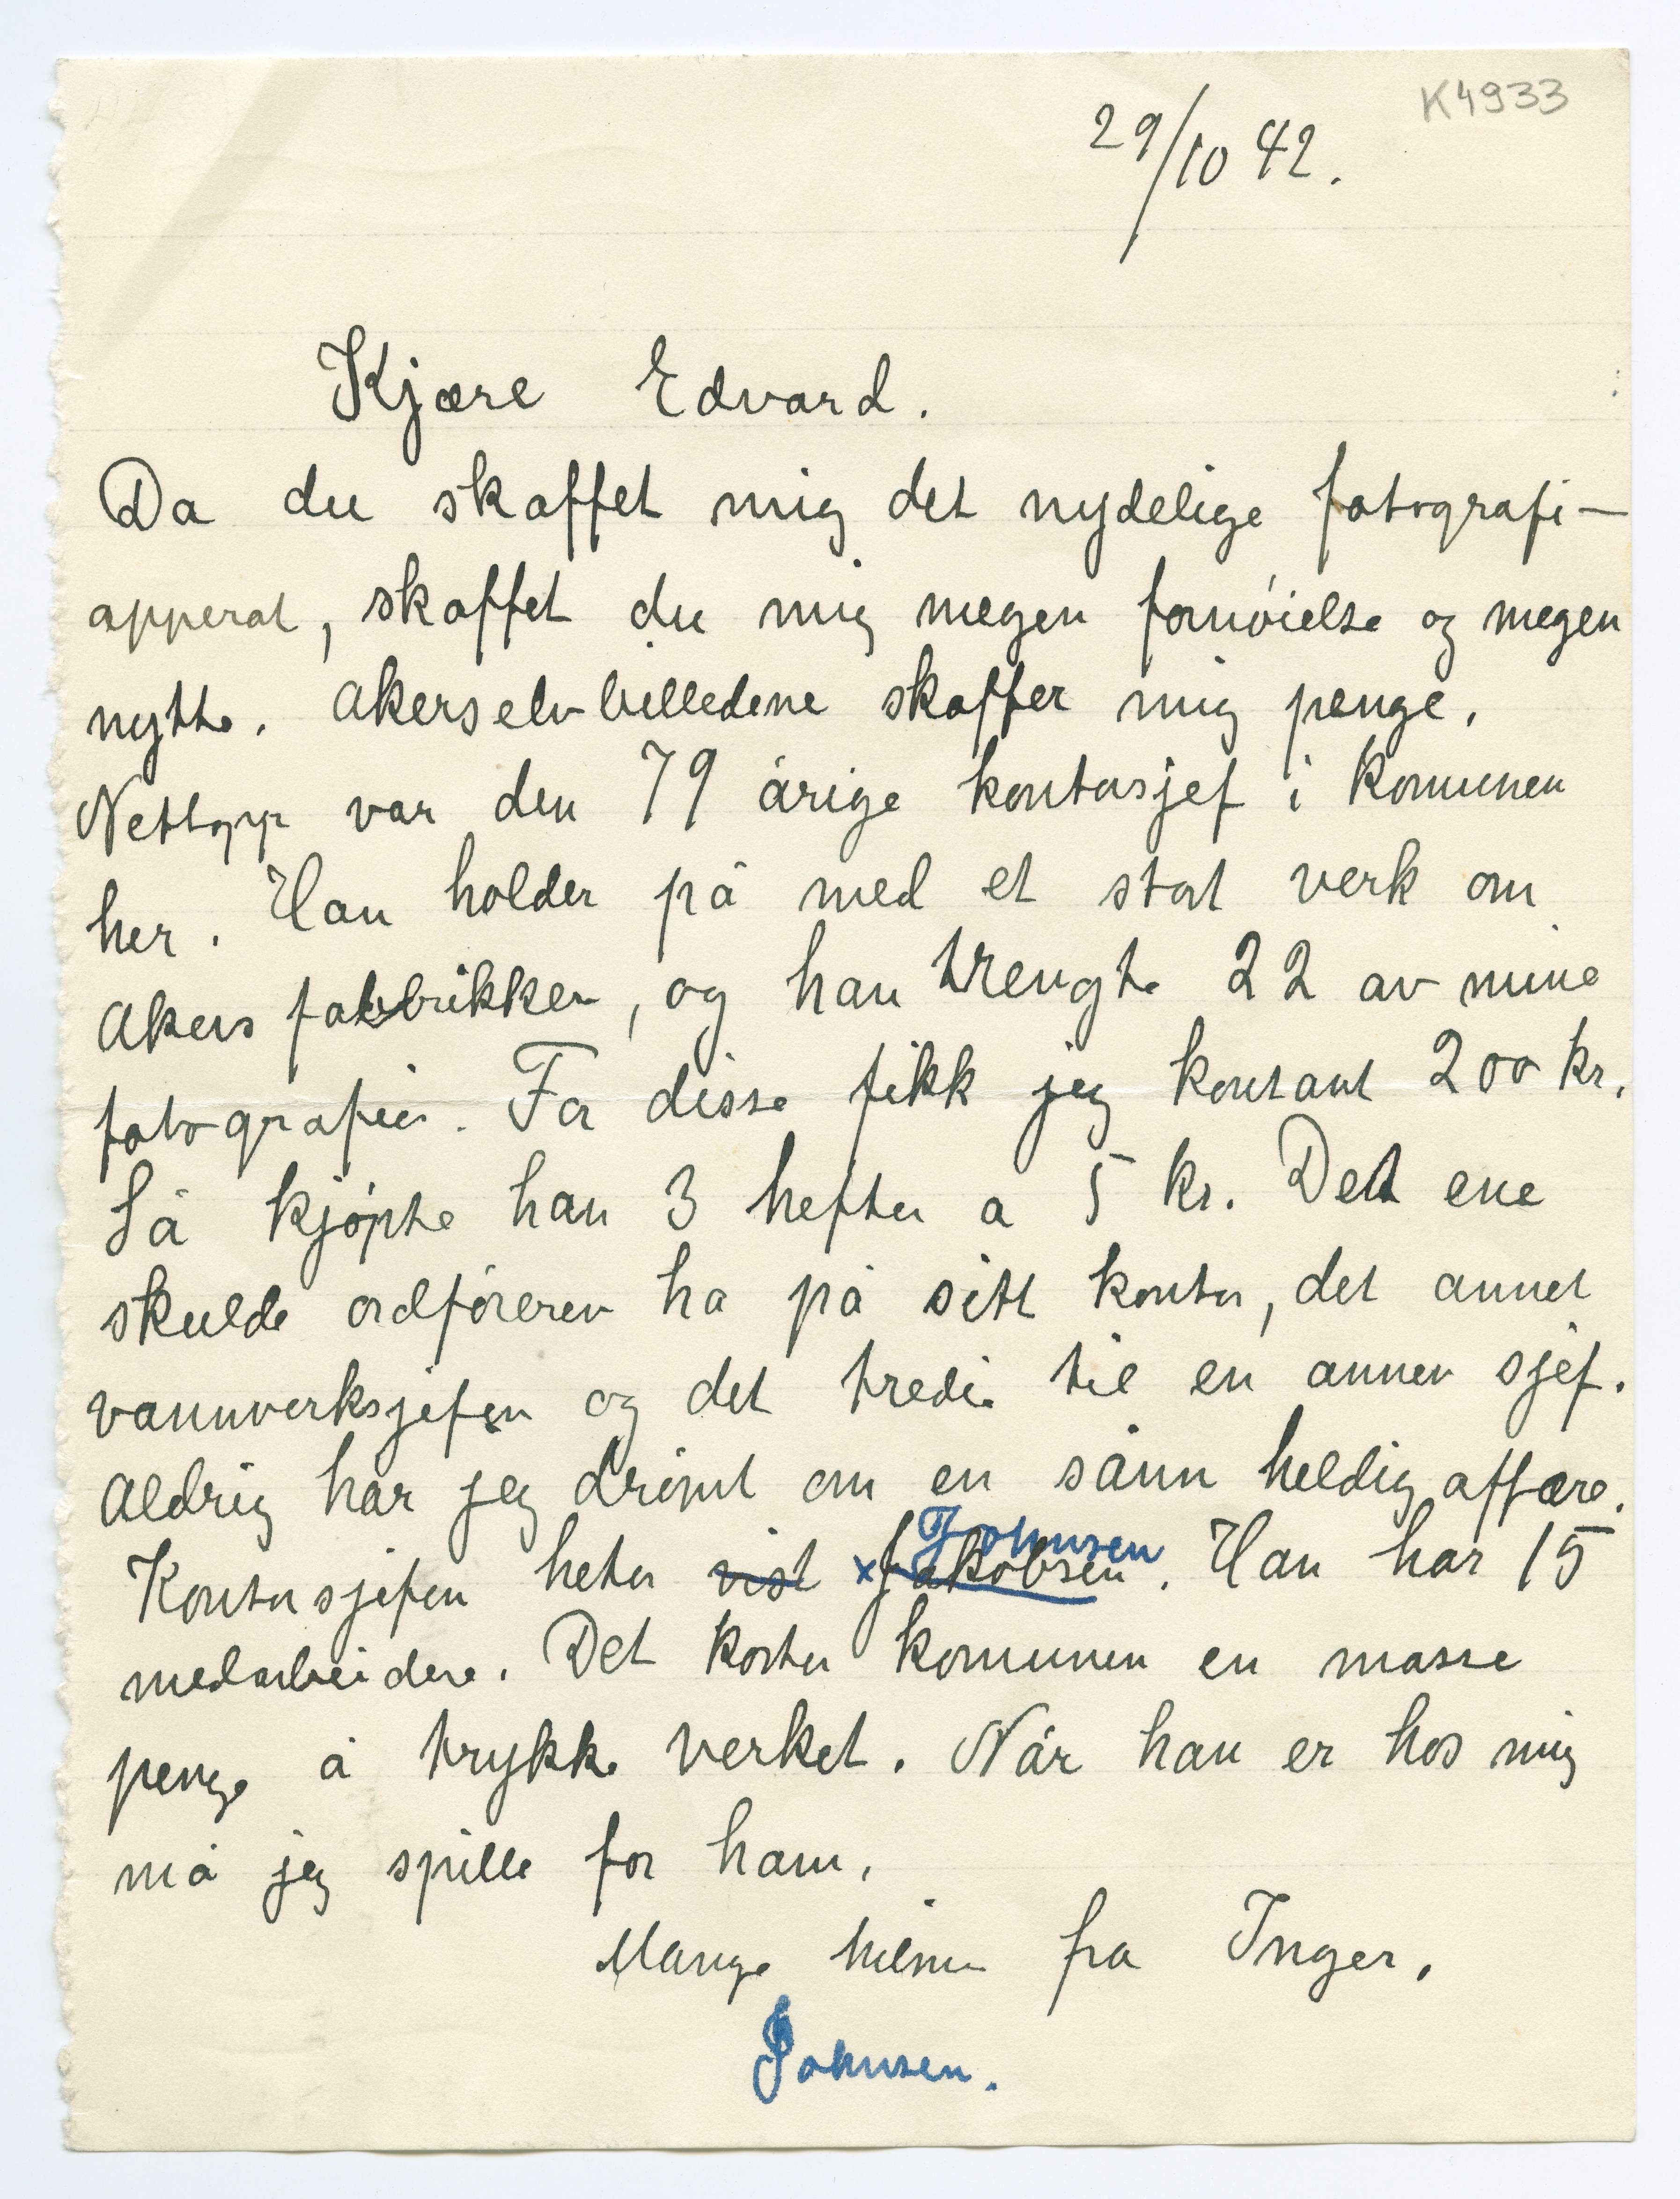 K4933
29/10 42.
Kjære Edvard.
Da du skaffet mig det nydelige fotografi-
apperat, skaffet du mig megen fornøielse og megen
nytte. Akerselvbilledene skaffer mig penge.
Nettopp var den 79 årige kontorsjef i Komunen
her. Han holder på med et stort verk om
Akers fabbrikker, og han trengte 22 av mine
fotografier. For disse fikk jeg kontant 200 kr.
Så kjøpte han 3 hefter a 5 kr. Det ene
skulde ordføreren ha på sitt kontor, det annet
vannverksjefen og det tredie til en annen sjef.
Aldrig har jeg drømt om en sånn heldig affære.
Johnsen
Kontorsjefen heter vist × Jakobsen. Han har 15
medarbeidere. Det koster komunen en masse
penge å trykke verket. Når han er hos mig
må jeg spille for ham.
Mange hilsner fra Inger.
Johnsen.